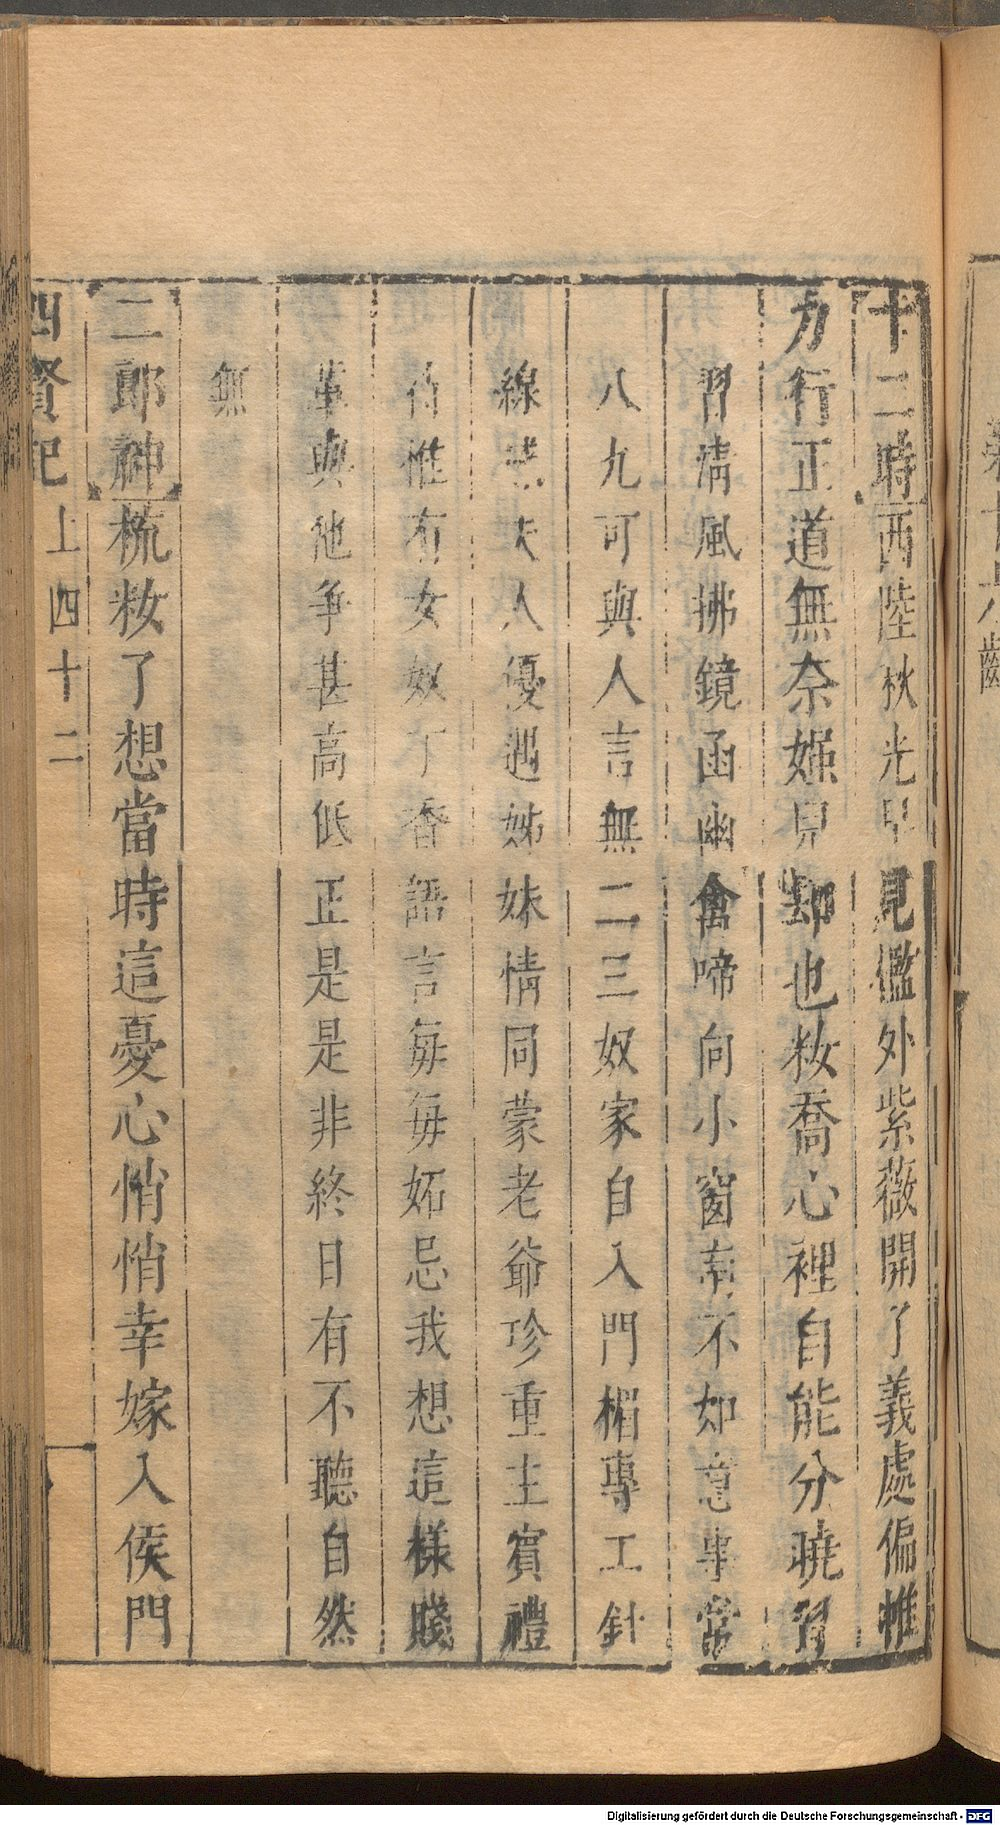 十二時西陸秋光早見檻外紫薇開了義處偏惟
力行正道無奈姬見却也妝喬心裡自能分曉習
習清風拂鏡函幽禽啼向小窗南不如意事常
八九可與人言無二三奴家自入門楣專工針
線夫人優遇姊妹情同蒙老爺珍重主賓禮
待惟有女奴丁香語言每每妬忌我想這樣賤
輩與他爭甚高低正是是非終日有不聽自然
無
二郎神梳妝了想當時這憂心悄悄幸嫁入侯門
四賢記 上四十二
Digitalisierung gefördert durch die Deutsche Forschungsgemeinschaft - DFG